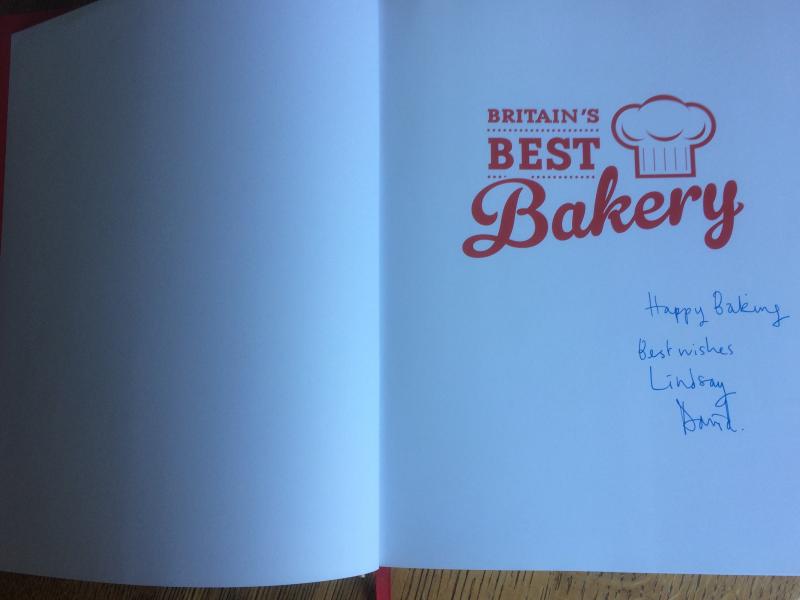 BRITAIN'S
BEST
Bakery
Happy Baking
Best wishes
Lindsay
David.